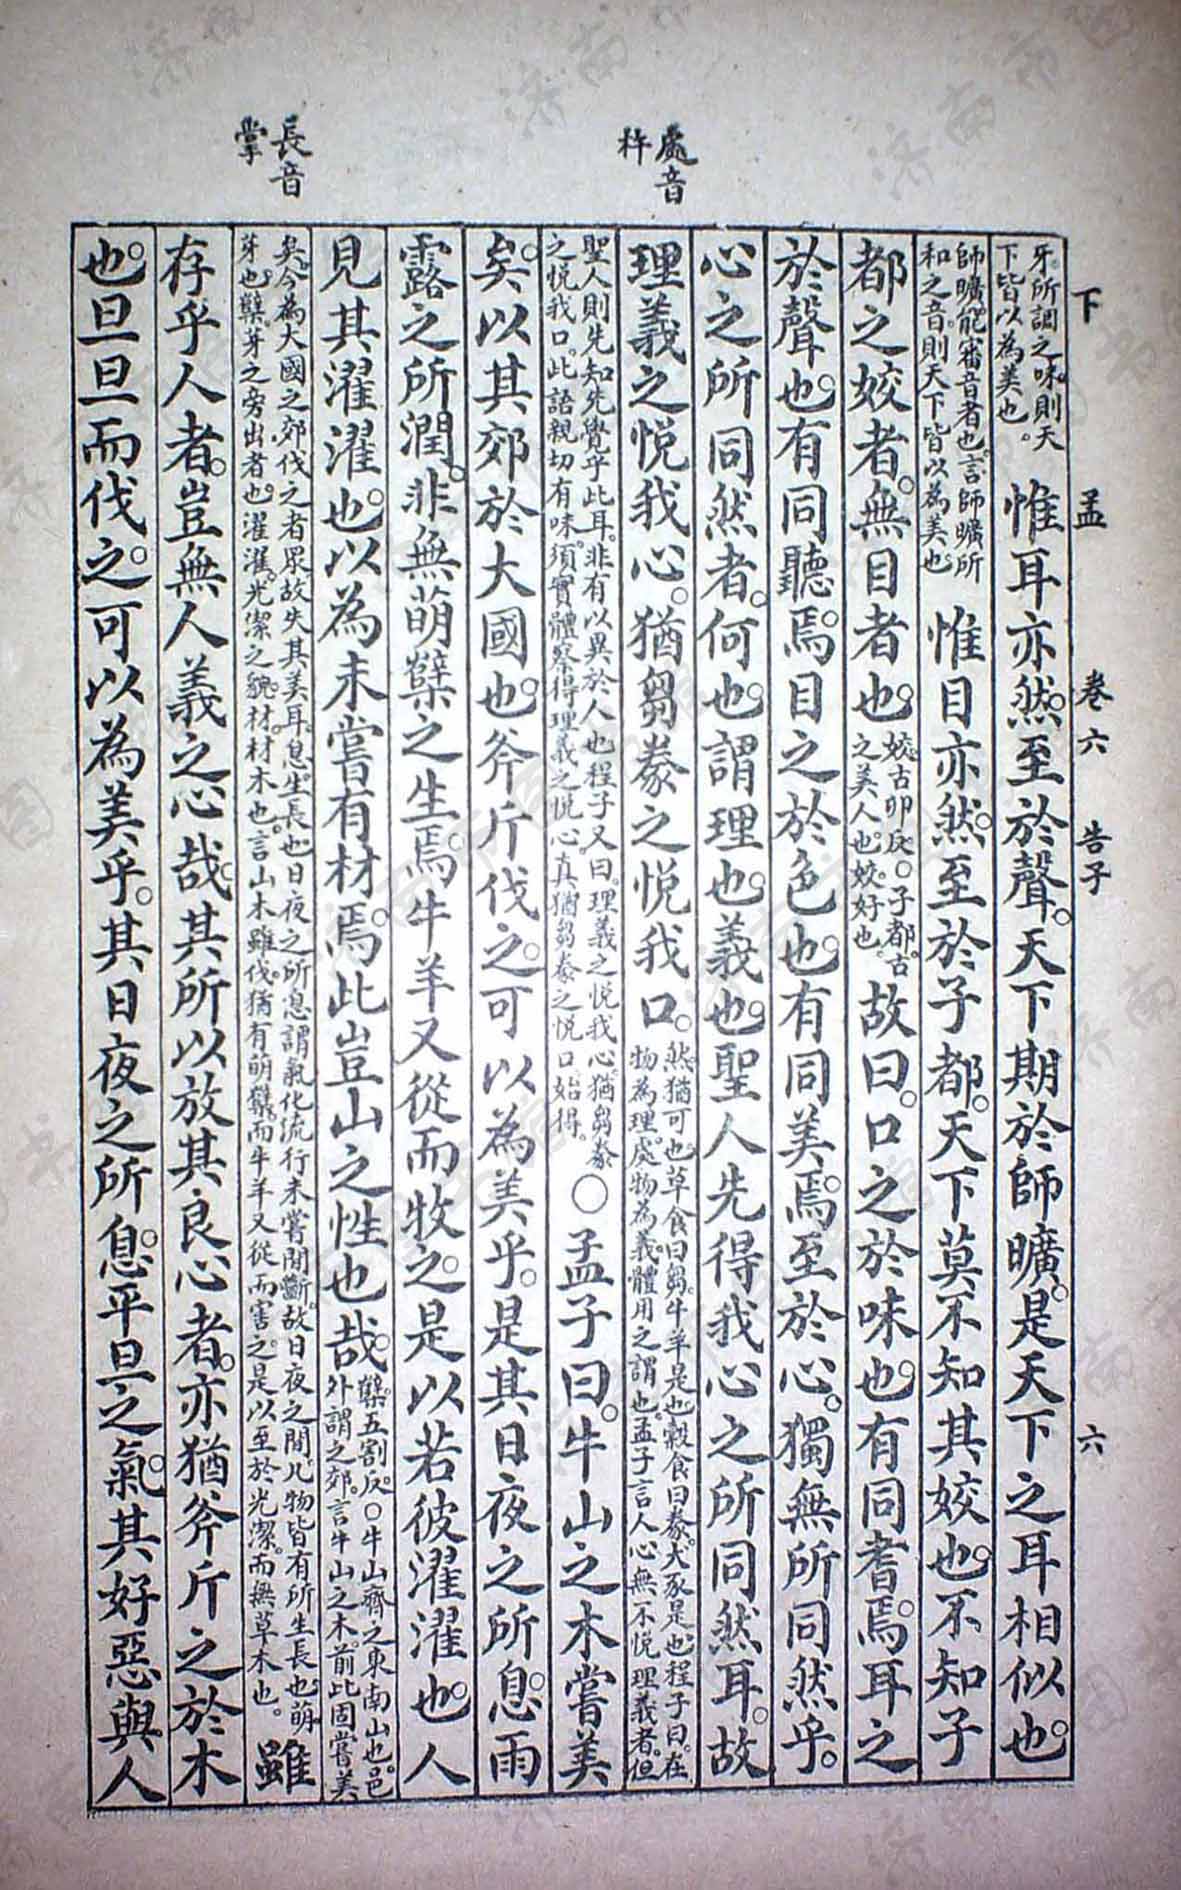 下孟 卷六 告子 六
處音
杵
長音
掌
牙所調之味則天
下皆以為美也。
惟耳亦然。至於聲。天下期於師曠。是天下之耳相似也。
師曠。能審音者也。言師曠所
和之音。則天下皆以為美也。
惟目亦然。至於子都。天下莫不知其姣也。不知子
都之姣者。無目者也。
姣。古卯反。○子都。古
之美人也。姣。好也。
故曰。口之於味也。有同耆焉。耳之
於聲也。有同聽焉。目之於色也。有同美焉。至於心。獨無所同然乎。
心之所同然者。何也。謂理也。義也。聖人先得我心之所同然耳。故
理義之悅我心。猶芻豢之悅我口。
然。猶可也。草食曰芻。牛羊是也。穀食曰豢。犬豕是也。程子曰。在
物為理。處物為義。體用之謂也。孟子言人心無不悅理義者。但
聖人則先知先覺乎此耳。非有以異於人也。程子又曰。理義之悅我心。猶芻豢
之悅我口。此語親切有味。須實體察得理義之悅心。真猶芻豢之悅口始得。
○孟子曰。牛山之木嘗美
矣。以其郊於大國也。斧斤伐之。可以為美乎。是其日夜之所息。雨
露之所潤。非無萌蘖之生焉。牛羊又從而牧之。是以若彼濯濯也。人
見其濯濯也。以為未嘗有材焉。此豈山之性也哉。
蘖。五割反。○牛山。齊之東南山也。邑
外謂之郊。言牛山之木。前此固嘗美
矣。今為大國之郊。伐之者眾。故失其美耳。息。生長也。日夜之所息。謂氣化流行未嘗間斷。故日夜之間。凡物皆有所生長也。萌。
芽也。蘖。芽之旁出者也。濯濯。光潔之貌。材。材木也。言山木雖伐。猶有萌蘖。而牛羊又從而害之。是以至於光潔。而無草木也。
雖
存乎人者。豈無人義之心哉。其所以放其良心者。亦猶斧斤之於木
也。旦旦而伐之。可以為美乎。其日夜之所息。平旦之氣。其好惡與人